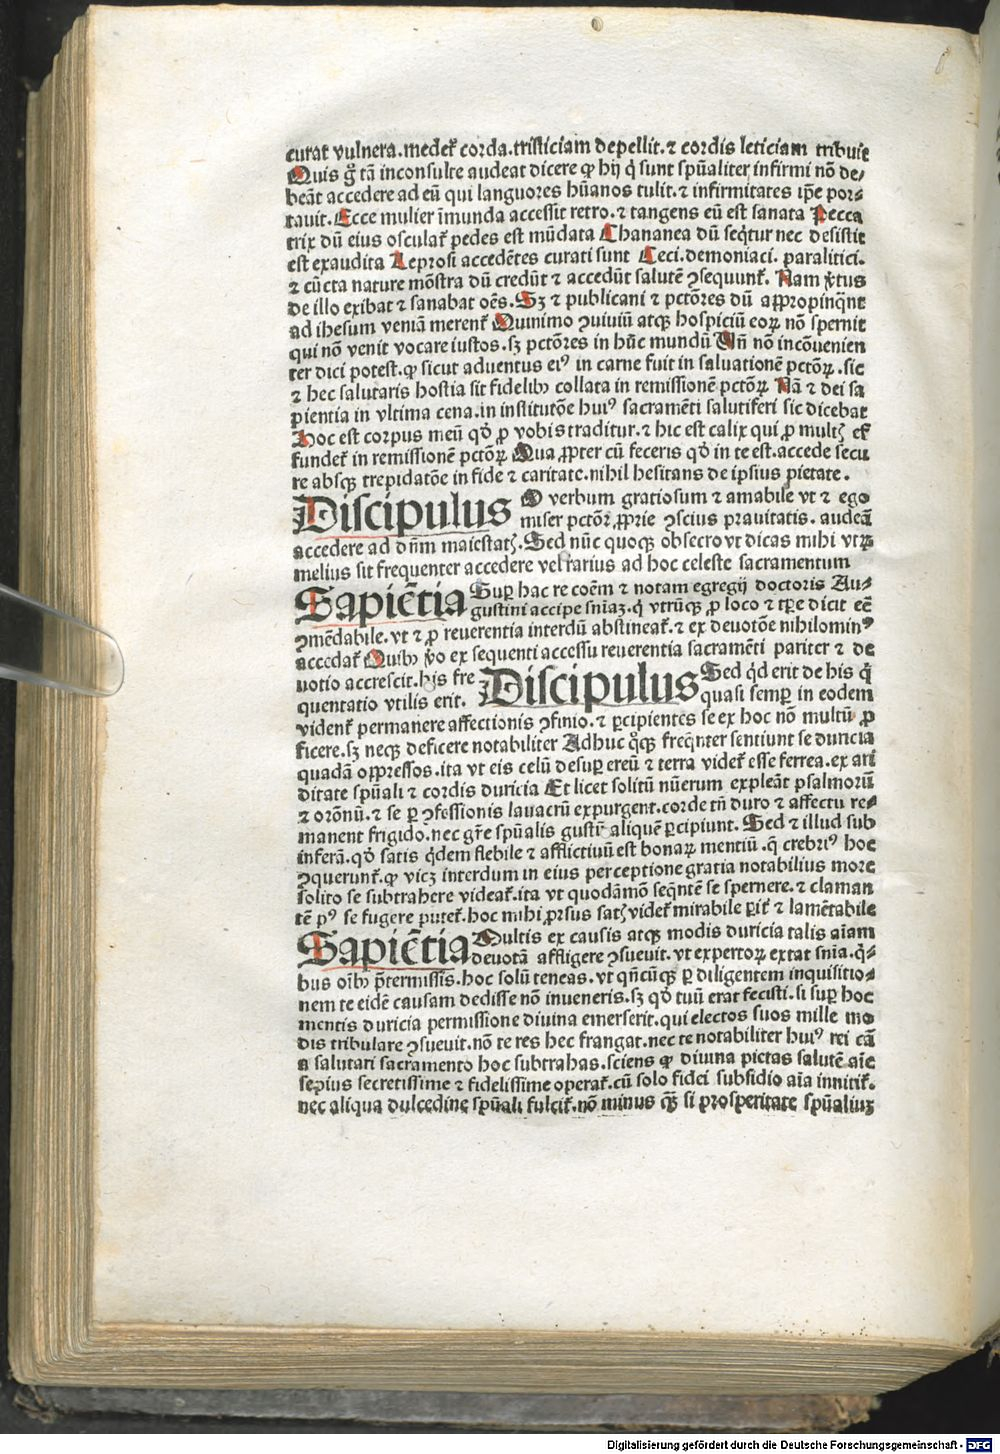 curat vulnera.medet᷑ corda.tristiciam depellit.⁊ cordis leticiam tribuit
Quis g̊ tā inconsulte audeat dicere ꝙ hij q̇ sunt spūaliter infirmi nō de/
beāt accedere ad eū qui languores hūanos tulit.⁊ infirmitates ip̄e por⸗
tauit.Ecce mulier īmunda accessit retro.⁊ tangens eū est sanata Pecca
trix dū eius osculat᷑ pedes est mūdata Chananea dū seq̇tur nec desistit
est exaudita Leprosi accedētes curati sunt Ceci.demoniaci.paralitici.
⁊ cūcta nature mōstra dū credūt ⁊ accedūt salutē ꝯsequunt᷑.Nam v̓tus
de illo exibat ⁊ sanabat oēs.Sꝫ ⁊ publicani ⁊ pctōres dū aꝓpropinq̄nt
ad ihesum veniā merent᷑ Quinimo ꝯuiuiū atqꝫ hospiciū eoꝝ nō spernit
qui nō venit vocare iustos.sꝫ pctōres in hūc mundū Vn̄ nō incōuenien
ter dici potest.ꝙ sicut aduentus eiꝰ in carne fuit in saluationē pctōꝝ.sic
⁊ hec salutaris hostia sit fidelibꝫ collata in remissionē pctōꝝ Nā ⁊ dei sa
pientia in vltima cena.in institutōe huiꝰ sacramēti salutiferi sic dicebat
Hoc est corpus meū qd̓ ꝓ vobis traditur.⁊ hic est calix qui ꝓ multꝭ ef
fundet᷑ in remissionē pctōꝝ Qua ꝓpter cū feceris qd̓ in te est.accede secu
re absqꝫ trepidatōe in fide ⁊ caritate.nihil hesitans de ipsius pietate.
Discipulus O verbum gratiosum ⁊ amabile vt ⁊ ego
miser pctōr ꝓprie ꝯscius prauitatis.audeā
accedere ad dn̄m maiestatꝭ.Sed nūc quoqꝫ obsecro vt dicas mihi vtꝝ
melius sit frequenter accedere vel rarius ad hoc celeste sacramentum
Sapiētia Suꝑ hac re coēm ⁊ notam egregij doctoris Au⸗
gustini accipe sn̄iaꝫ.q̇ vtrūqꝫ ꝓ loco ⁊ tꝑe dicit eē
ꝯmēdabile.vt ⁊ ꝓ reuerentia interdū abstineat᷑.⁊ ex deuotōe nihilominꝰ
accedat᷑ Quibꝫ v̓o ex sequenti accessu reuerentia sacramēti pariter ⁊ de
uotio accrescit.hijs fre
quentatio vtilis erit. Discipulus Sed q̇d erit de his q̇
quasi semꝑ in eodem
vident᷑ permanere affectionis ꝯfinio.⁊ ꝑcipientes se ex hoc nō multū ꝓ
ficere.sꝫ neqꝫ deficere notabiliter Adhuc q̊qꝫ freq̄nter sentiunt se duricia
quadā oppressos.ita vt eis celū desuꝑ ereū ⁊ terra videt᷑ esse ferrea.ex ari
ditate spūali ⁊ cordis duricia Et licet solitū nūerum expleāt psalmorū
⁊ orōnū.⁊ se ꝑ ꝯfessionis lauacrū expurgent.corde tn̄ duro ⁊ affectu re⸗
manent frigido.nec gr̄e spūalis gustū aliquē ꝑcipiunt.Sed ⁊ illud sub
inferā.qd̓ satis q̇dem flebile ⁊ afflictiuū est bonaꝝ mentiū.q̄ crebriꝰ hoc
ꝯquerunt᷑.ꝙ vicꝫ interdum in eius perceptione gratia notabilius more
solito se subtrahere videat᷑.ita vt quodāmō seq̄ntē se spernere.⁊ claman
tē pꝰ se fugere putet᷑.hoc mihi ꝓrsus satꝭ videt᷑ mirabile ꝑit᷑ ⁊ lamētabile
Sapiētia Multis ex causis atqꝫ modis duricia talis aīam
deuotā affligere ꝯsueuit.vt expertoꝝ extat sn̄ia.q̇⸗
bus oībꝫ p̄termissis.hoc solū teneas.vt qn̄cūqꝫ ꝑ diligentem inquisitio⸗
nem te eidē causam dedisse nō inueneris.sꝫ qd̓ tuū erat fecisti.si suꝑ hoc
mentis duricia permissione diuina emerserit.qui electos suos mille mo
dis tribulare ꝯsueuit.nō te res hec frangat.nec te notabiliter huiꝰ rei cā
a salutari sacramento hoc subtrahas.sciens ꝙ diuina pietas salutē aīe
sepius secretissime ⁊ fidelissime operat᷑.cū solo fidei subsidio aīa innitit᷑.
nec aliqua dulcedine spūali fulcit᷑.nō minus qꝫ̄ si prosperitate spūaliuꝫ
Digitalisierung gefördert durch die Deutsche Forschungsgemeinschaft - DFG